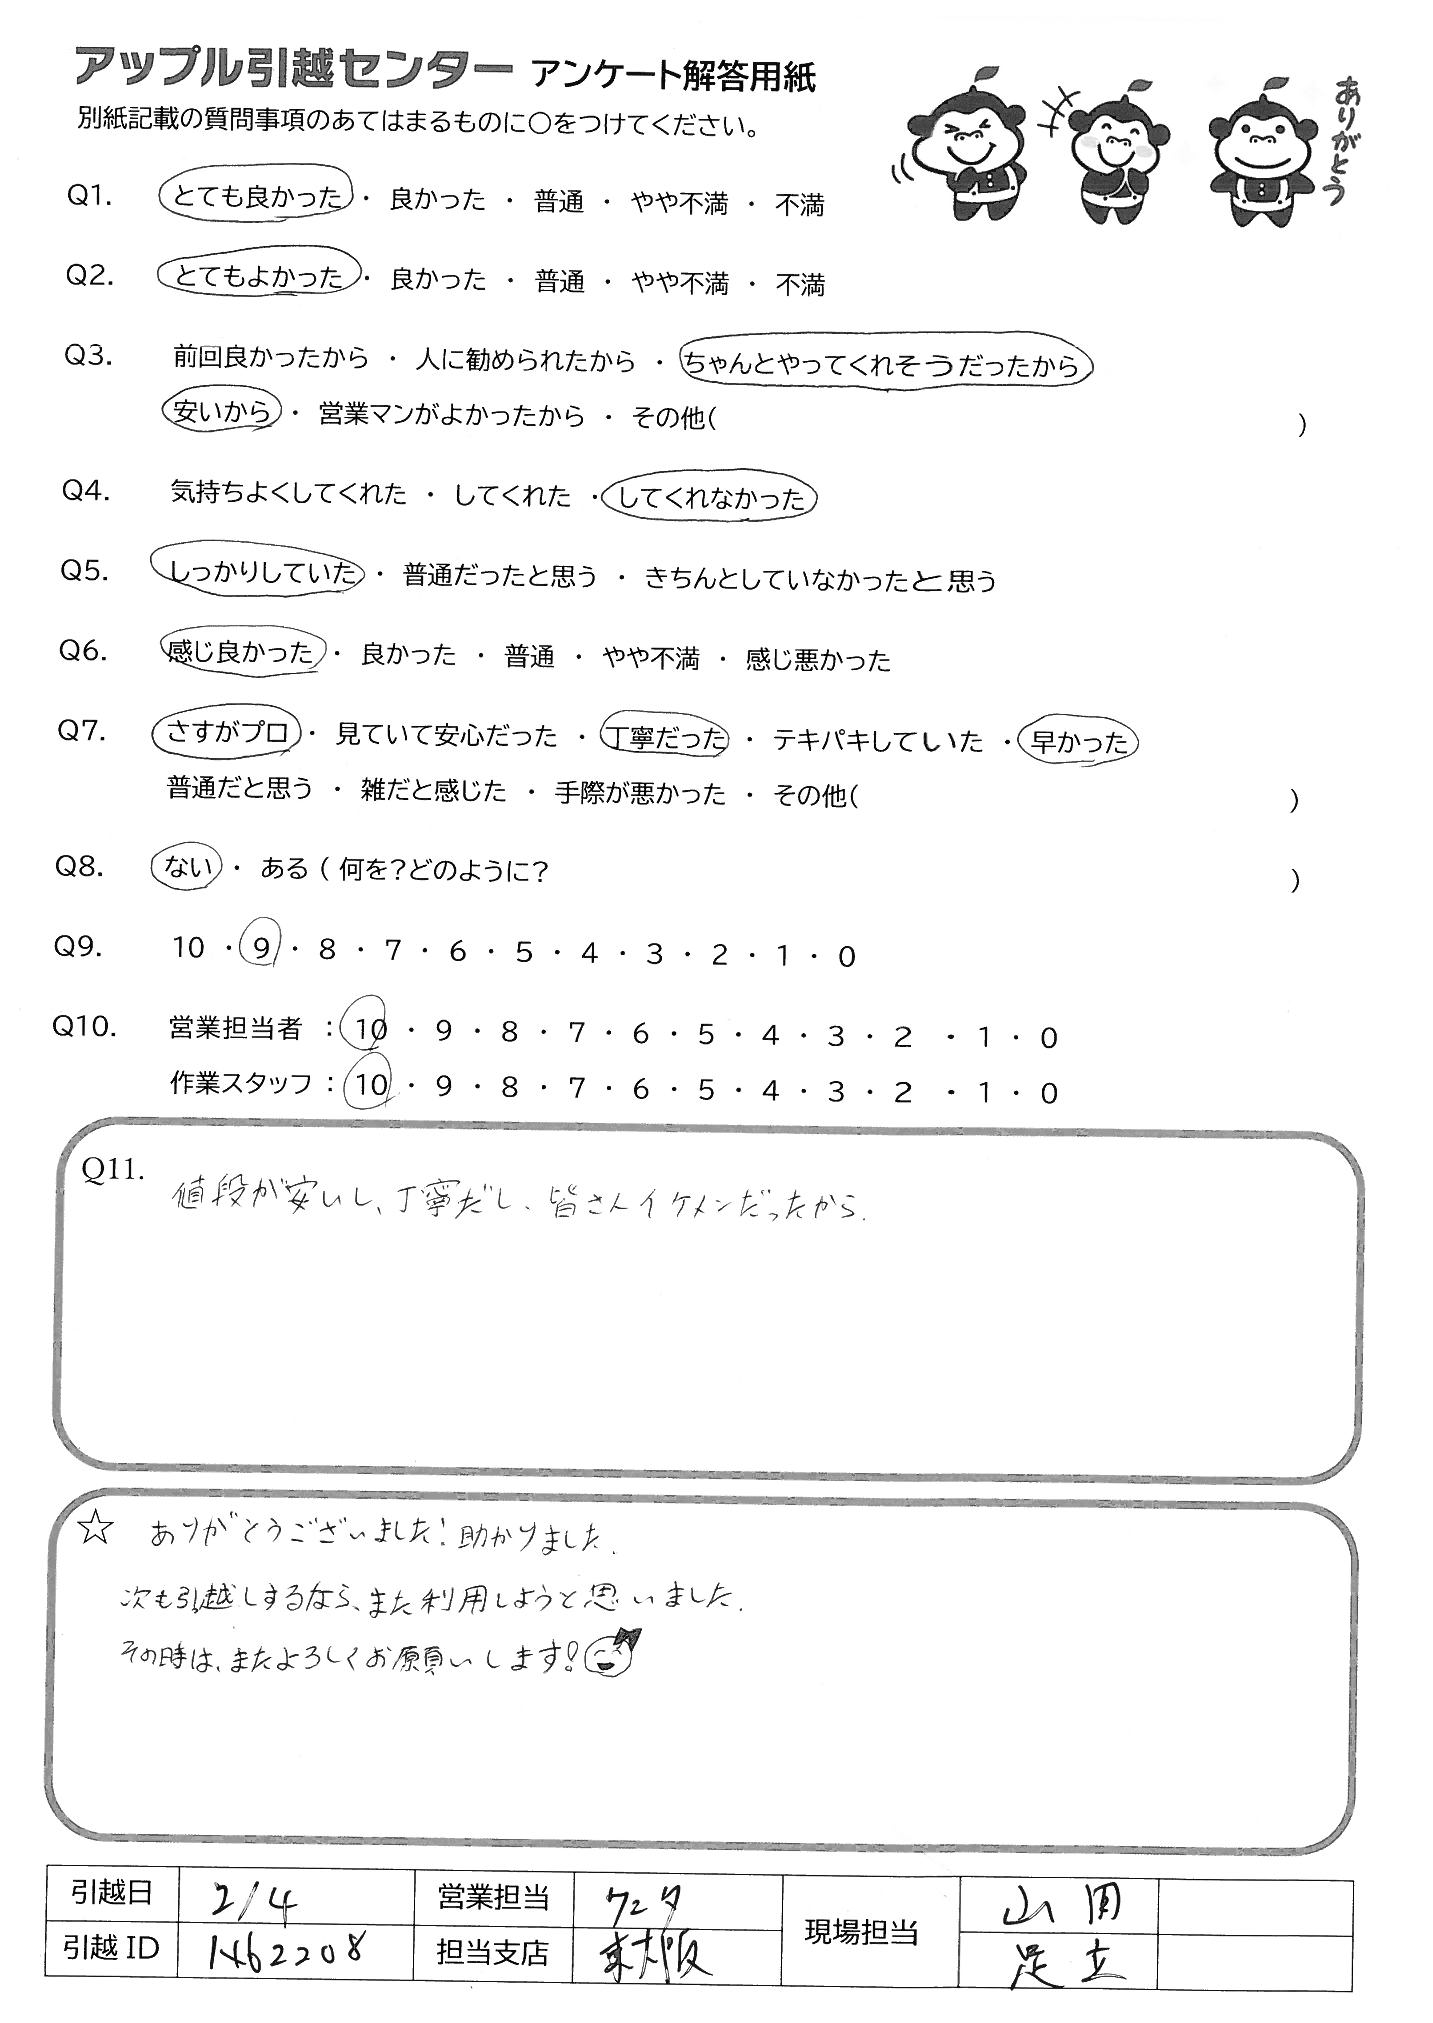 アップル引越センター アンケート解答用紙
別紙記載の質問事項のあてはまるものに○をつけてください。
ありがとう
Q1. とても良かった ・ 良かった ・ 普通 ・ やや不満 ・ 不満
Q2. とてもよかった ・ 良かった ・ 普通 ・ やや不満 ・ 不満
Q3. 前回良かったから ・ 人に勧められたから ・ ちゃんとやってくれそうだったから
安いから ・ 営業マンがよかったから ・ その他( )
Q4. 気持ちよくしてくれた ・ してくれた ・ してくれなかった
Q5. しっかりしていた ・ 普通だったと思う ・ きちんとしていなかったと思う
Q6. 感じ良かった ・ 良かった ・ 普通 ・ やや不満 ・ 感じ悪かった
Q7. さすがプロ ・ 見ていて安心だった ・ 丁寧だった ・ テキパキしていた ・ 早かった
普通だと思う ・ 雑だと感じた ・ 手際が悪かった ・ その他( )
Q8. ない ・ ある ( 何を?どのように? )
Q9. 10 ・ 9 ・ 8 ・ 7 ・ 6 ・ 5 ・ 4 ・ 3 ・ 2 ・ 1 ・ 0
Q10. 営業担当者 : 10 ・ 9 ・ 8 ・ 7 ・ 6 ・ 5 ・ 4 ・ 3 ・ 2 ・ 1 ・ 0
作業スタッフ : 10 ・ 9 ・ 8 ・ 7 ・ 6 ・ 5 ・ 4 ・ 3 ・ 2 ・ 1 ・ 0
Q11. 値段が安いし、丁寧だし、皆さんイケメンだったから.
☆ ありがとうございました!助かりました.
次も引越しするなら、また利用しようと思いました.
その時は、またよろしくお願いします!
引越日 2/4 営業担当 現場担当 山
引越ID 1462208 担当支店 東大阪 足立